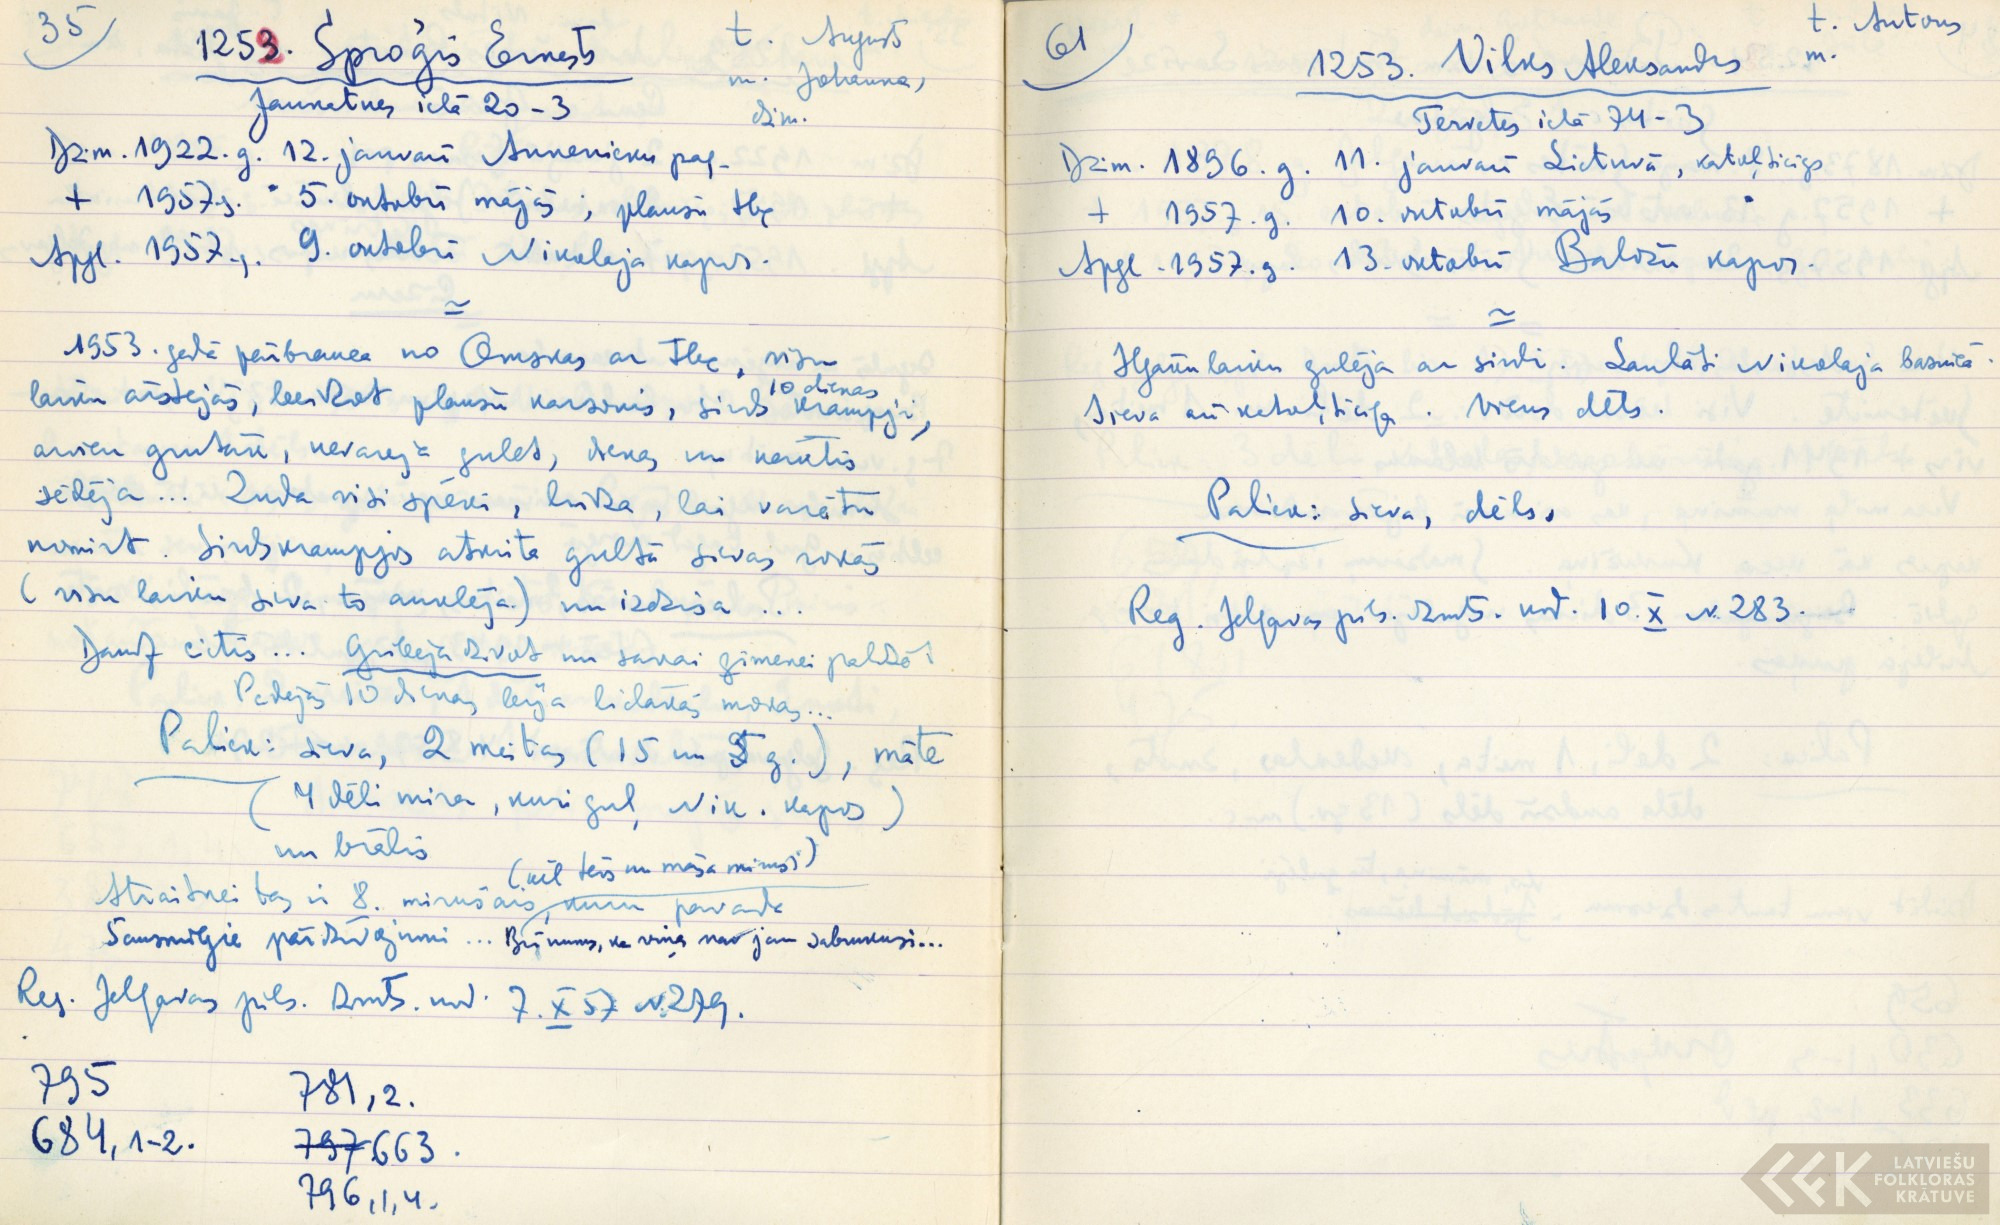 35
1253. Sproģis Ernests
t. Augusts
m. Johanna,
dzim.
Jaunatnes ielā 20-3
Dzim. 1922. g. 12. janvarī Annenieku pag.
+ 1957. g. 5. oktobrī mājās, plaušu tbc
Apgl. 1957. g. 9. oktobrī Nikolaja kapos.
1953. gadā pārbrauca no Omskas ar tbc, visu
laiku ārstejās, beidzot plaušu karsonis, sirds 10 dienas krampji,
arvien grutāk, nevareja gulet, dienas un naktis
sēdēja... Zuda visi spēki, ludza, lai varētu
nomirt. Sirdskrampjos atkrita gultā sievas rokās
(visu laiku sieva to auklēja) un izdzisa....
Daudz cietis... Gribeja dzivot un savai ģimenei palidzēt
Pedejās 10 dienas bija lielakās mokas...
Paliek: sieva, 2 meitas (15 un 5 g.), māte
(4 dēli mira, kuri guļ Nik. kapos)
un brālis
(vēl tēvs un māsa mirusi)
Atraitnei tas ir 8. mirušais, kuru pavada
Šausmīgie pārdzīvojumi... Brīnums, ka viņa nav jau sabrukusi...
Reg. Jelgavas pils. dzmts. nod. 7. X 57 N. 279.
795 781, 2.
684, 1-2. 797 663.
796, 1, 4.
61
t. Antons
m.
1253. Vilks Aleksandrs
Tervetes ielā 74-3
Dzim. 1896. g. 11. janvarī Lietuvā, katoļticīgs
+ 1957. g. 10. oktobrī mājās
Apgl. 1957. g. 13. oktobrī Baložu kapos.
Ilgāku laiku gulēja ar sirdi. Laulāti Nikolaja baznicā.
Sieva arī katoļticīga. Viens dēls.
Paliek: sieva, dēls.
Reg. Jelgavas pils. dzmts. nod. 10. X N. 283.
LATVIEŠU
FOLKLORAS
KRĀTUVE